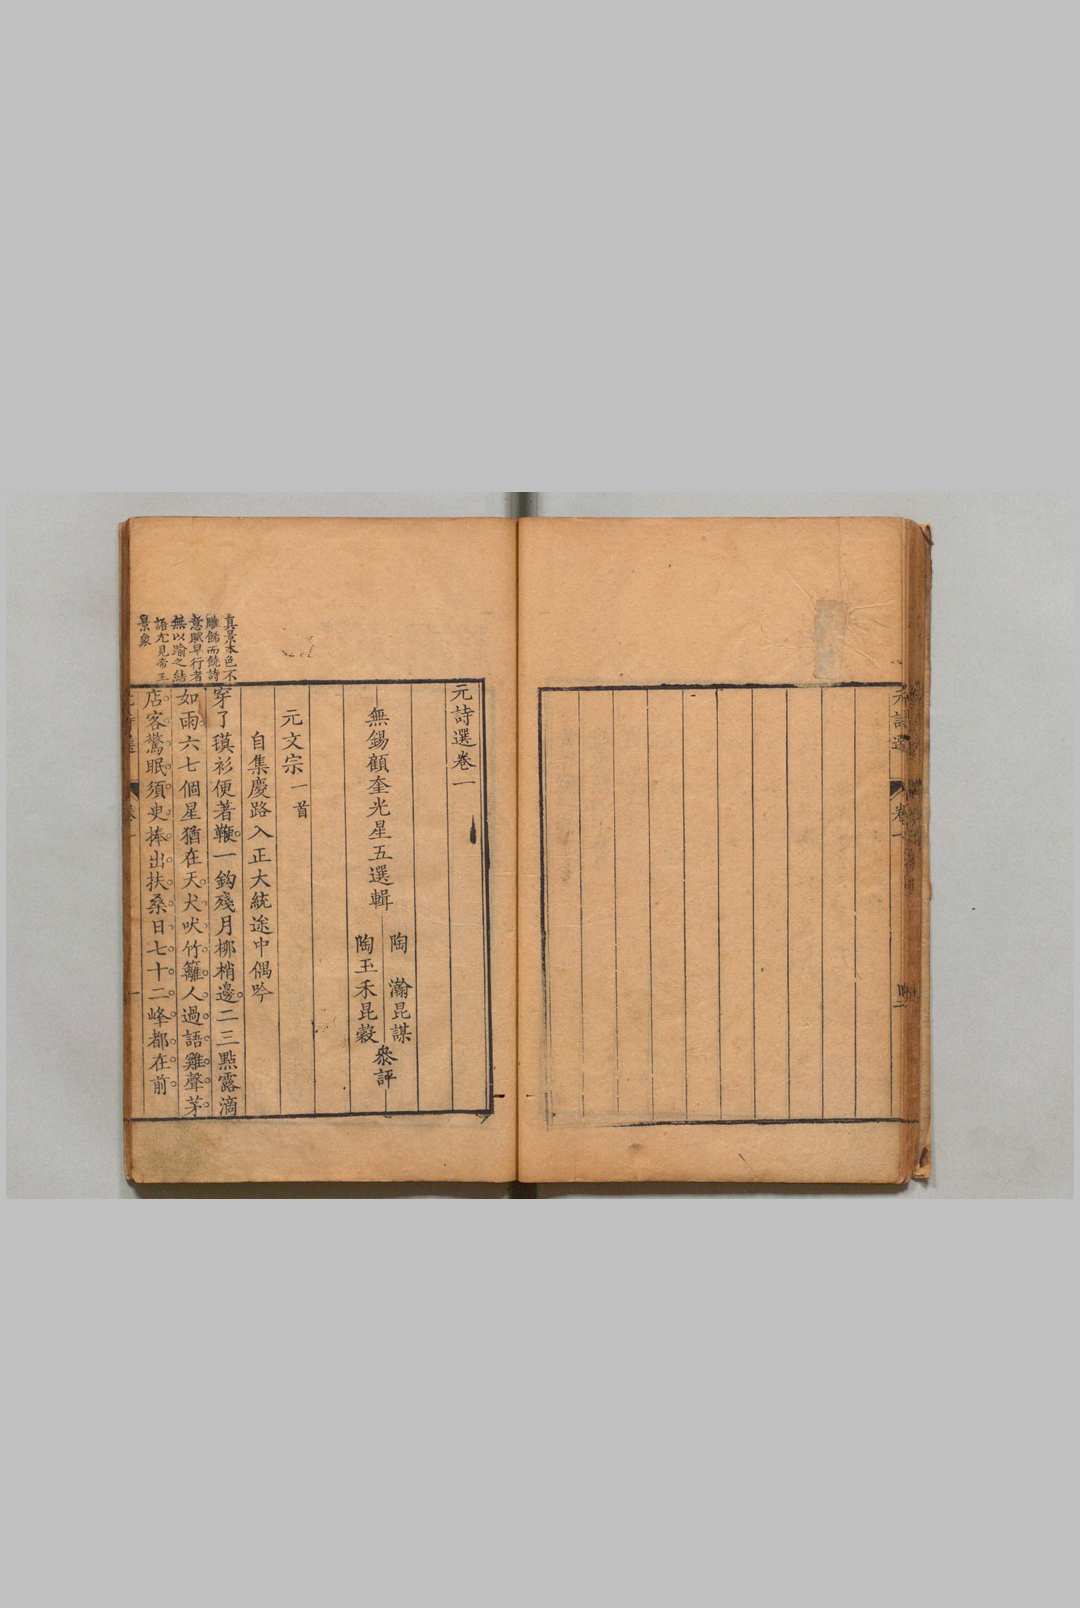 元詩選
卷一
元詩選卷一
無錫顧奎光星五選輯
陶　瀚昆謀
陶玉禾昆穀
叅評
元文宗一首
自集慶路入正大統途中偶吟
穿了𮋒衫便著鞭一鈎殘月柳梢邊二三點露滴
如雨六七個星猶在天犬吠竹籬人過語雞聲茅
店客驚眠須臾捧出扶桑日七十二峰都在前
真景本色不
雕飾而饒詩
意賦早行者
無以踰之結
語尤見帝王
景象